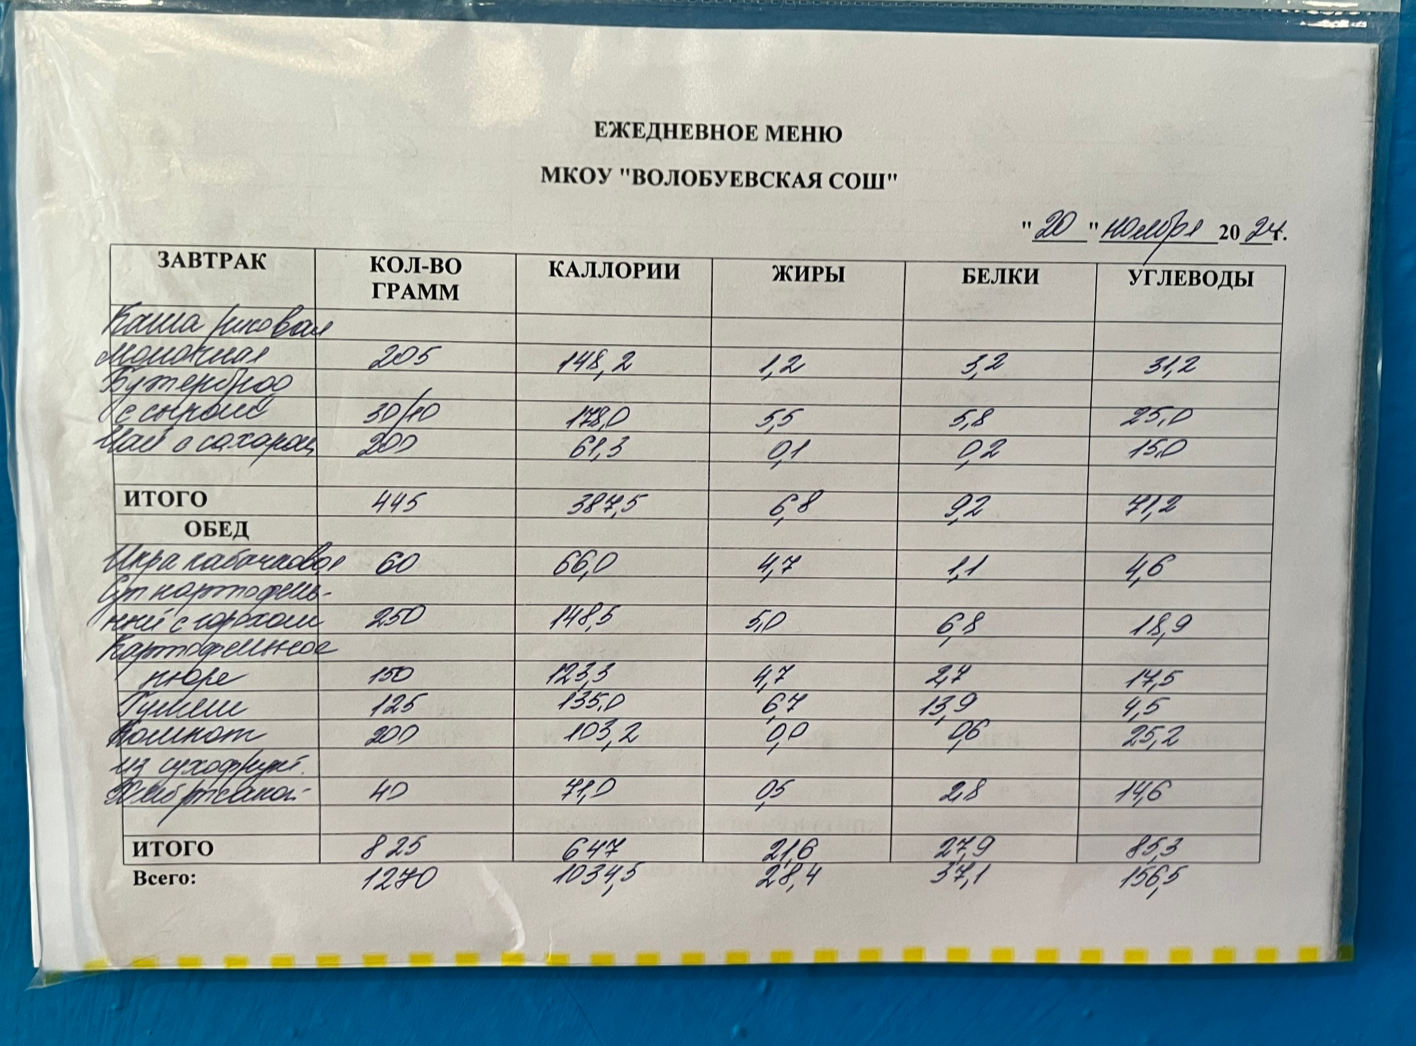 ЕЖЕДНЕВНОЕ МЕНЮ
МКОУ "ВОЛОБУЕВСКАЯ СОШ"
"20" ноября 2024г.
ЗАВТРАК КОЛ-ВО ГРАММ КАЛЛОРИИ ЖИРЫ БЕЛКИ УГЛЕВОДЫ
Каша рисовая
молочная 205 148,2 1,2 3,2 31,2
Бутерброд
с сыром 30/10 178,0 5,5 5,8 25,0
Чай с сахаром 200 61,3 0,1 0,2 15,0
ИТОГО 445 387,5 6,8 9,2 71,2
ОБЕД
Икра кабачковая 60 66,0 4,7 1,1 4,6
Суп картофель-
ный с горохом 250 148,5 5,0 6,8 18,9
Картофельное
пюре 150 123,3 4,7 2,7 17,5
Гуляш 125 135,0 6,7 13,9 4,5
Компот 200 103,2 0,0 0,6 25,2
из сухофрукт.
Хлеб ржаной 40 71,0 0,5 2,8 14,6
ИТОГО 825 647 21,6 27,9 85,3
Всего: 1270 1034,5 28,4 37,1 156,5